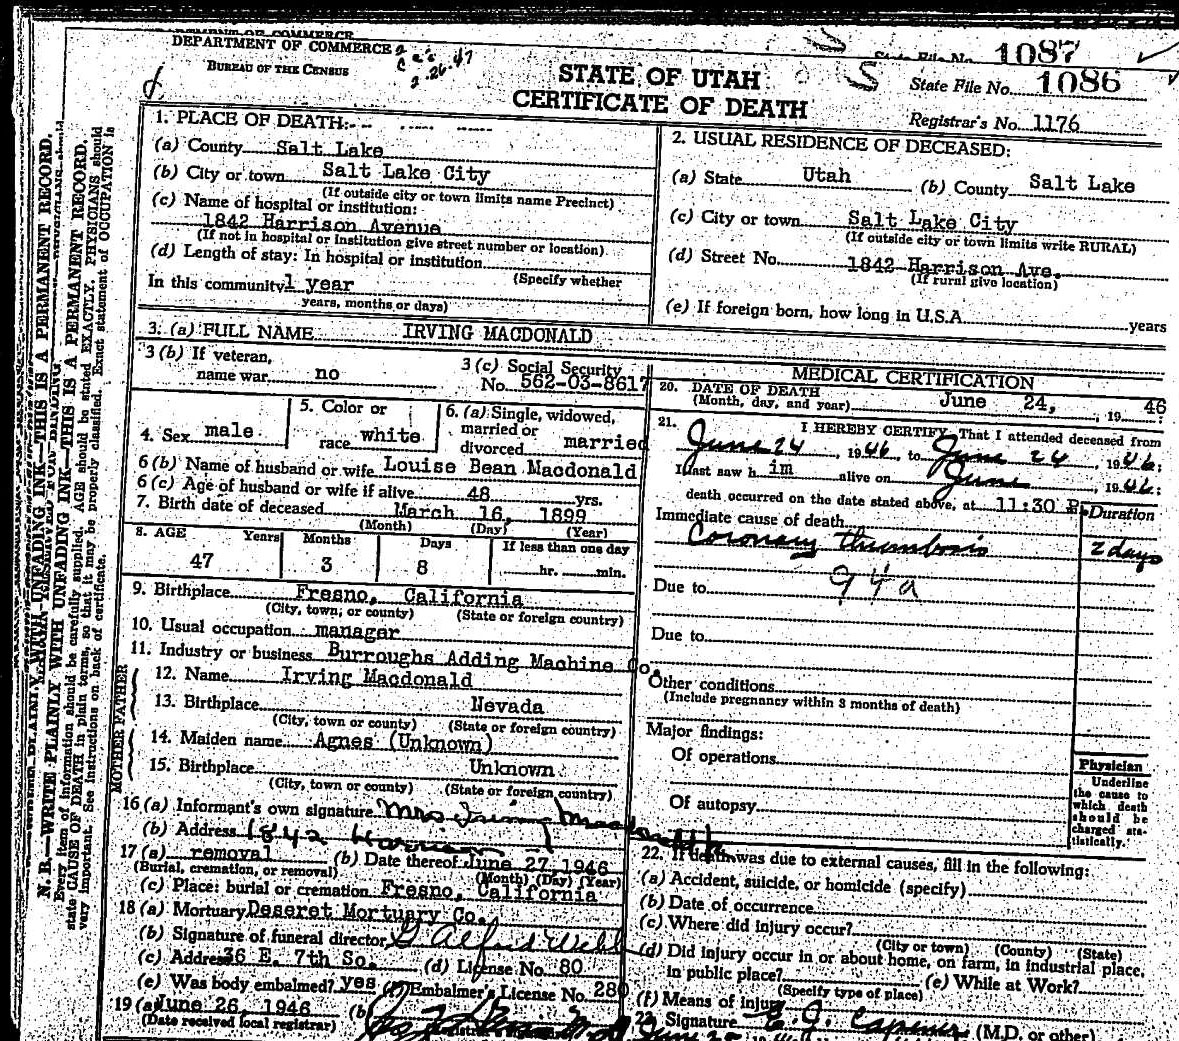 DEPARTMENT OF COMMERCE
BUREAU OF THE CENSUS
2-26-47
STATE OF UTAH
CERTIFICATE OF DEATH
State File No. 1087
State File No. 1086
Registrar's No. 1176
1. PLACE OF DEATH:
(a) County Salt Lake
(b) City or town Salt Lake City
(If outside city or town limits name Precinct)
(c) Name of hospital or institution:
1842 Harrison Avenue
(If not in hospital or institution give street number or location)
(d) Length of stay: In hospital or institution
(Specify whether
In this community 1 year
years, months or days)
2. USUAL RESIDENCE OF DECEASED:
(a) State Utah (b) County Salt Lake
(c) City or town Salt Lake City
(If outside city or town limits write RURAL)
(d) Street No. 1842 Harrison Ave.
(If rural give location)
(e) If foreign born, how long in U.S.A. years
3. (a) FULL NAME IRVING MACDONALD
3 (b) If veteran,
name war no
3 (c) Social Security
No. 562-03-8617
4. Sex male
5. Color or
race white
6. (a) Single, widowed,
married or
divorced married
6 (b) Name of husband or wife Louise Bean Macdonald
6 (c) Age of husband or wife if alive 48 yrs.
7. Birth date of deceased March 16, 1899
(Month) (Day) (Year)
8. AGE Years Months Days If less than one day
47 3 8 hr. min.
9. Birthplace Fresno, California
(City, town, or county) (State or foreign country)
10. Usual occupation manager
11. Industry or business Burroughs Adding Machine Co.
FATHER
12. Name Irving Macdonald
13. Birthplace Nevada
(City, town or county) (State or foreign country)
MOTHER
14. Maiden name Agnes (Unknown)
15. Birthplace Unknown
(City, town or county) (State or foreign country)
16 (a) Informant's own signature Mrs Irving Macdonald
(b) Address 1842 Harrison
17 (a) removal (b) Date thereof June 27, 1946
(Burial, cremation, or removal) (Month) (Day) (Year)
(c) Place: burial or cremation Fresno, California
18 (a) Mortuary Deseret Mortuary Co.
(b) Signature of funeral director G Alfred Webb
(c) Address 36 E. 7th So. (d) License No. 80
(e) Was body embalmed? yes (f) Embalmer's License No. 280
19 (a) June 26, 1946 (b)
(Date received local registrar)
MEDICAL CERTIFICATION
20. DATE OF DEATH
(Month, day, and year) June 24, , 19 46
21. I HEREBY CERTIFY, That I attended deceased from
June 24, 1946, to June 24, 1946;
I last saw h im alive on June, 1946;
death occurred on the date stated above, at 11:30 P.
Duration
Immediate cause of death
Coronary thrombosis 2 days
Due to 94a
Due to
Other conditions
(Include pregnancy within 3 months of death)
Major findings:
Of operations
Of autopsy
Physician
Underline
the cause to
which death
should be
charged sta-
tistically.
22. If death was due to external causes, fill in the following:
(a) Accident, suicide, or homicide (specify)
(b) Date of occurrence
(c) Where did injury occur?
(City or town) (County) (State)
(d) Did injury occur in or about home, on farm, in industrial place,
in public place? (e) While at Work?
(Specify type of place)
(f) Means of injury
23. Signature E. J. (M.D. or other)
N. B.—WRITE PLAINLY WITH UNFADING INK—THIS IS A PERMANENT RECORD.
Every item of information should be carefully supplied. AGE should be stated EXACTLY. PHYSICIANS should
state CAUSE OF DEATH in plain terms, so that it may be properly classified. Exact statement of OCCUPATION is
very important. See instructions on back of certificate.